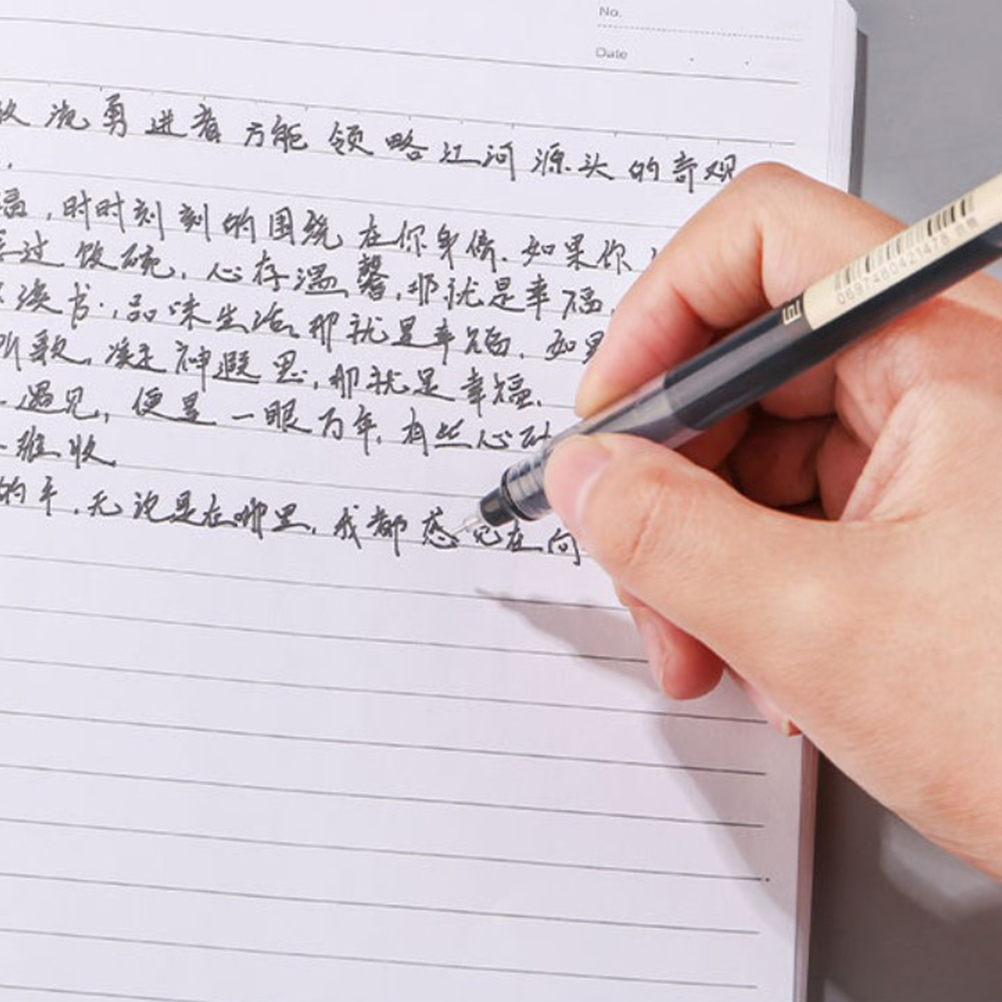 No.
Date
流勇进者方能领略江河源头的奇观
福,时时刻刻的围绕在你身傍.如果你
过饭碗,心存温馨,那就是幸福.
读书,品味生活,那就是幸福.如果
听歌,凝神遐思,那就是幸福.
遇见,便是一眼万年,有些心动
难收
的年,无论是在哪里,我都感见在向
0697460421478